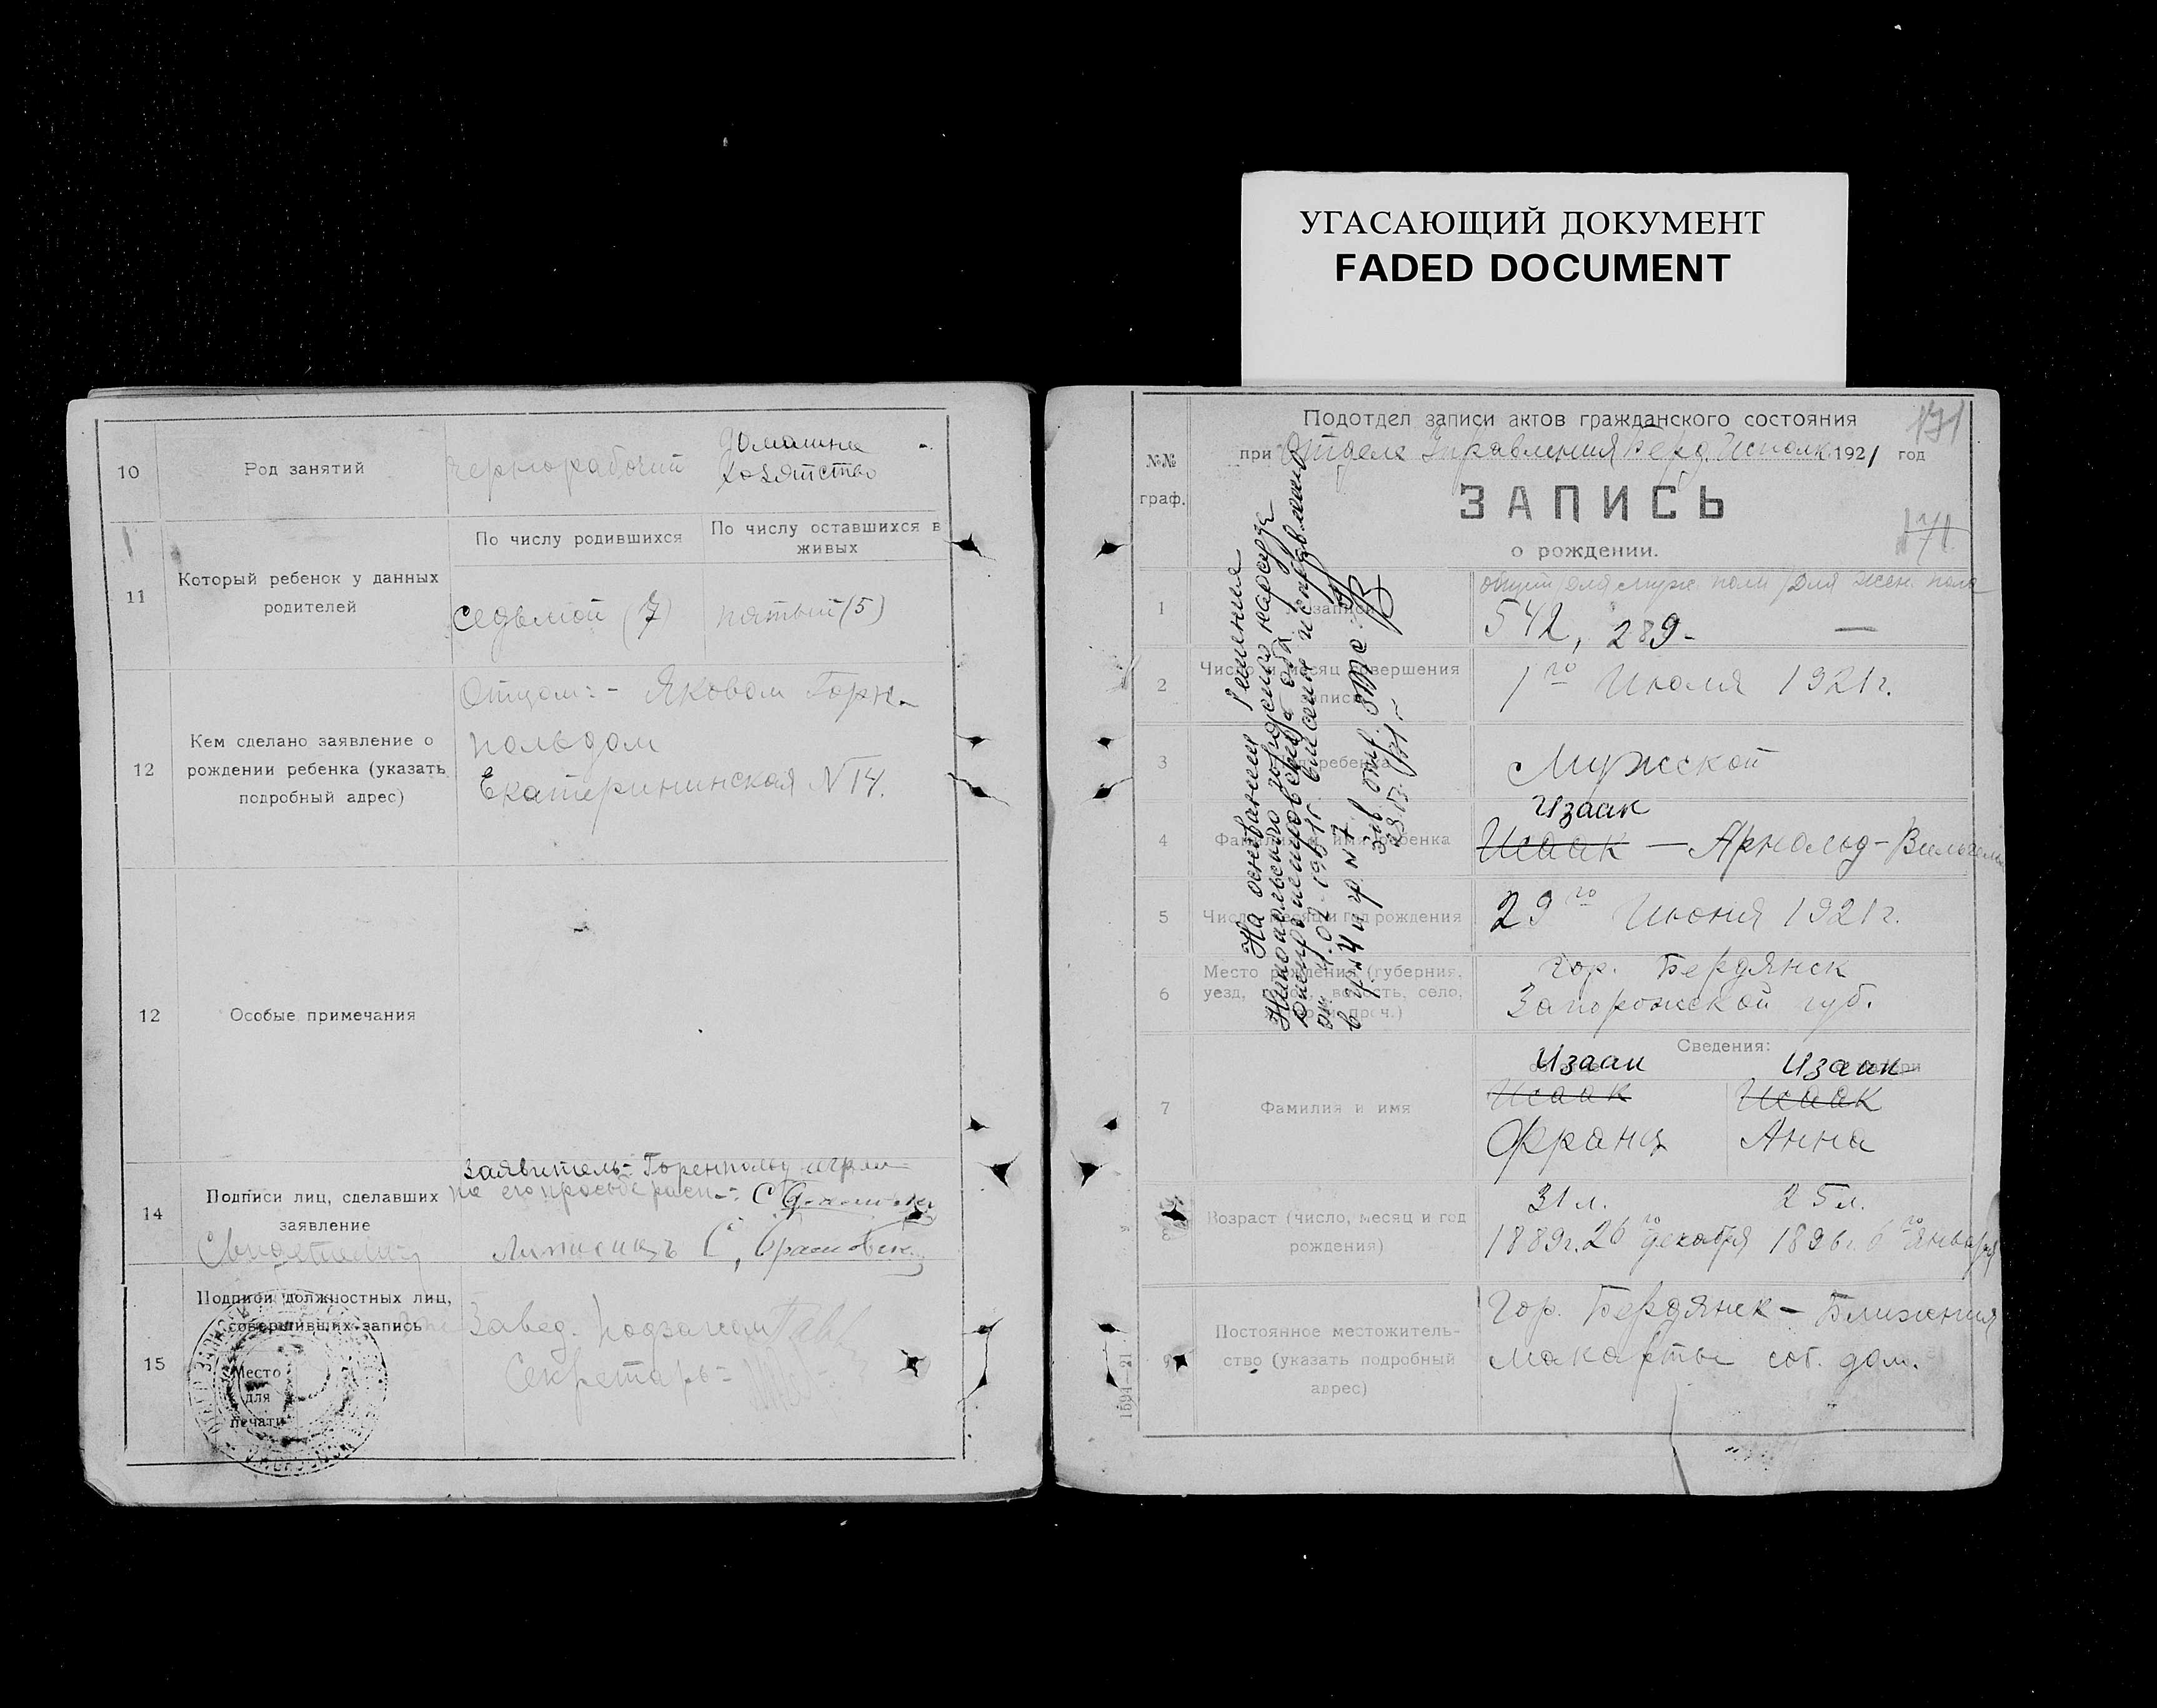 УГАСАЮЩИЙ ДОКУМЕНТ
FADED DOCUMENT
10
Род занятий
чернорабочий
домашнее
хозяйство
11
Который ребенок у данных
родителей
По числу родившихся
По числу оставшихся в
живых
седьмой (7)
пятый (5)
12
Кем сделано заявление о
рождении ребенка (указать
подробный адрес)
Отцом:- Яковом Горн-
польдом
Екатерининская N 14.
12
Особые примечания
14
Подписи лиц, сделавших
заявление
заявитель- Горенпольд
по его просьбе расп-:
С.
15
Подписи должностных лиц,
совершивших запись
Место
для
печати
Завед. Подзагсом
Секретарь-
171
№№
граф.
Подотдел записи актов гражданского состояния
при Отделе Управления Берд. Исполк. 1921 год
ЗАПИСЬ
о рождении.
171
На основании решения
Никопольского городского нарсуда
Днепропетровской обл.
в гр. N 4 и гр. N 7.
1
№ записи
общий/для муж. пола/для жен. пола
542, 289- —
2
Число и месяц совершения
записи
1го Июля 1921г.
3
Пол ребенка
Мужской
4
Фамилия и имя ребенка
Изаак
Исаак — Арнольд-Вильгельм
5
Число, месяц и год рождения
29го Июня 1921г.
6
Место рождения (губерния,
уезд, город, волость, село,
гор. Бердянск
Запорожской губ.
Сведения:
7
Фамилия и имя
Изаак
Изаак
Исаак
Исаак
Франц
Анна
Возраст (число, месяц и год
рождения)
31 л.
25 л.
1889г. 26го декабря
1896г. 6го января
9
Постоянное местожитель-
ство (указать подробный
адрес)
Гор. Бердянск - Ближения
Макорты соб. дом.
1594—21